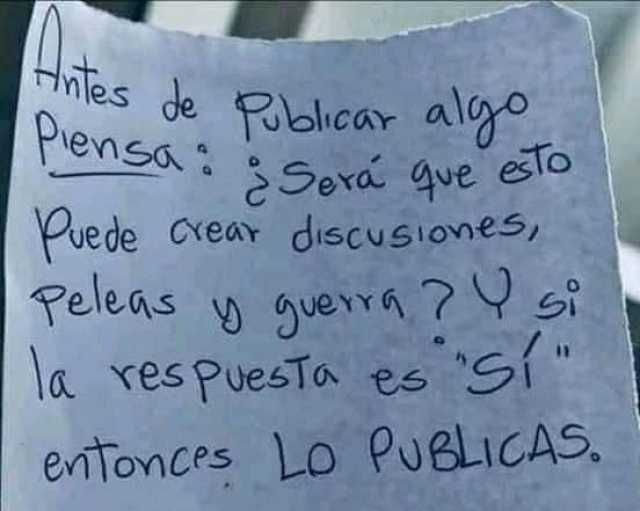 Antes de Publicar algo
Piensa: ¿Será que esto
Puede crear discusiones,
Peleas y guerra? Y si
la respuesta es "SÍ"
entonces LO PUBLICAS.